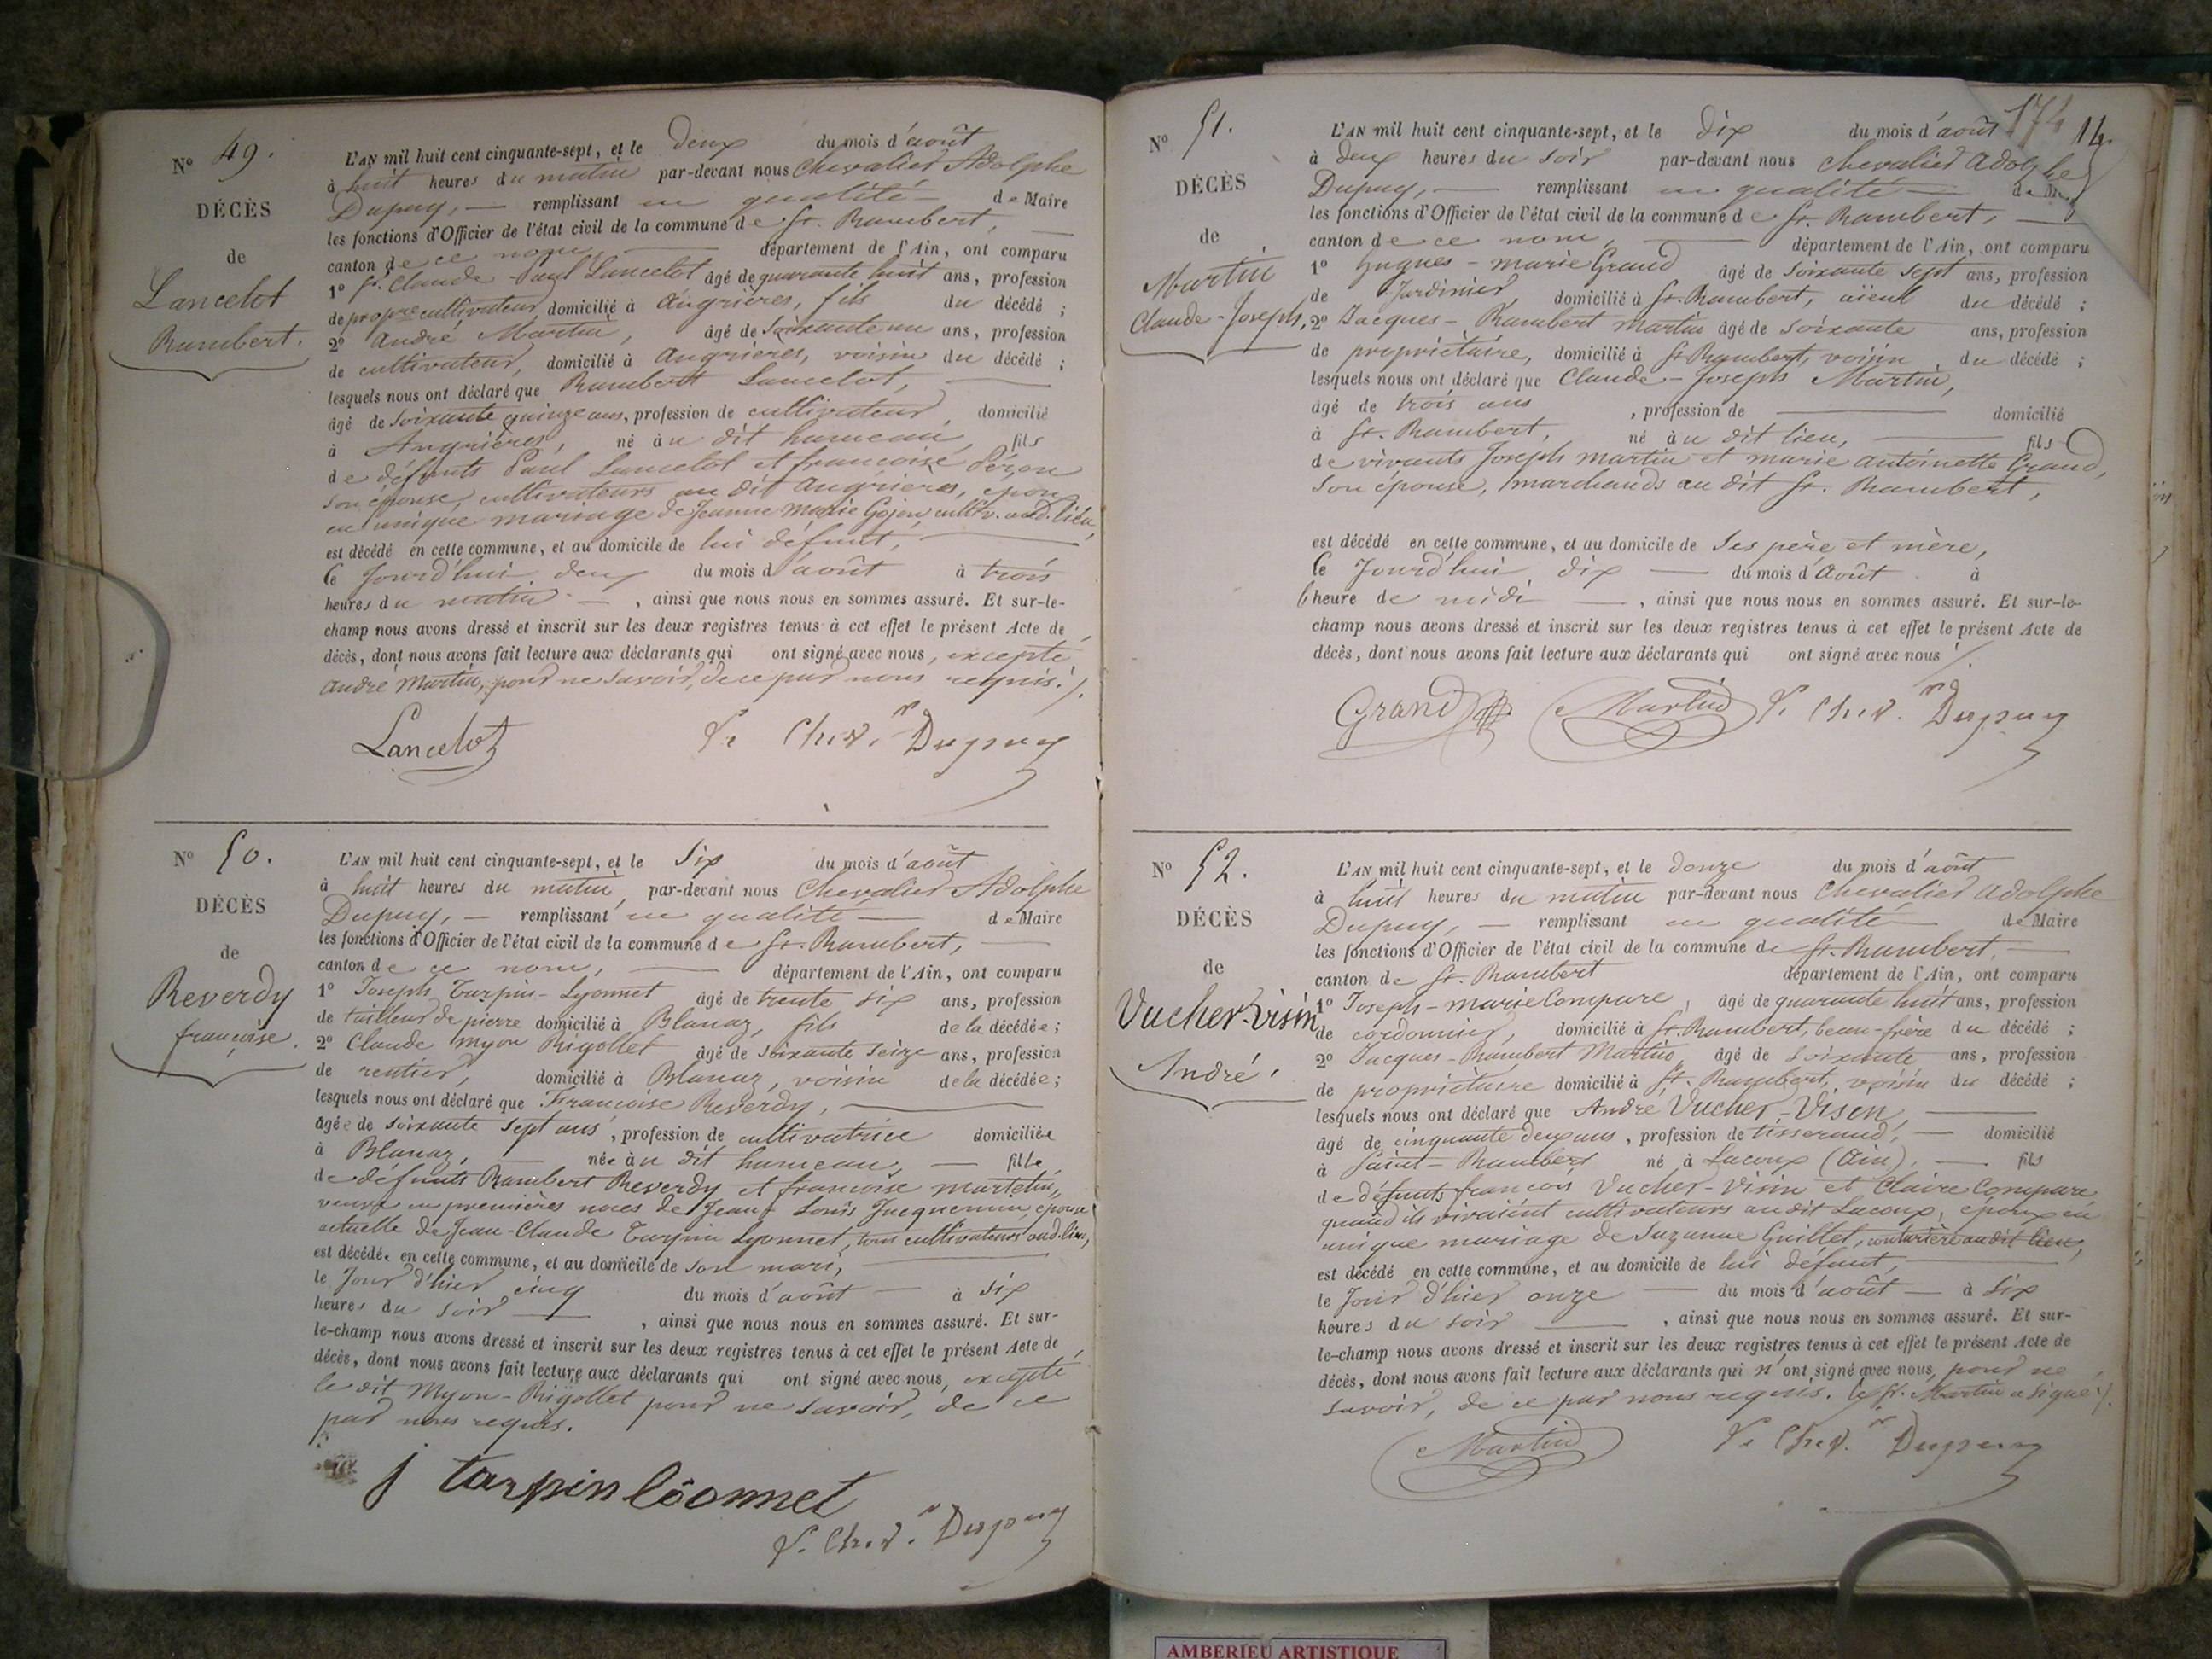 N° 49.
DÉCÈS
de
Lancelot
Rambert.
L'AN mil huit cent cinquante-sept, et le deux du mois d'août
à huit heures du matin par-devant nous Chevalier Adolphe
Dupuy, — remplissant en qualité — de Maire
les fonctions d'Officier de l'état civil de la commune de St. Rambert, —
canton de ce nom, — département de l'Ain, ont comparu
1° Claude Paul Lancelot âgé de quarante huit ans, profession
de propre cultivateur, domicilié à Angrières, fils du décédé ;
2° André Martin, âgé de soixante un ans, profession
de cultivateur, domicilié à Angrières, voisin du décédé ;
lesquels nous ont déclaré que Rambert Lancelot, —
âgé de soixante quinze ans, profession de cultivateur domicilié
à Angrières, né au dit hameau, fils
de défunts Paul Lancelot et françoise
son épouse, cultivateurs au dit Angrieres, époux
en unique mariage de Jeanne Marie Gojon, cultiv. aud. lieu,
est décédé en cette commune, et au domicile de lui défunt, —
ce Jourd'hui deux du mois d'août à trois
heures du matin —, ainsi que nous nous en sommes assuré. Et sur-le-
champ nous avons dressé et inscrit sur les deux registres tenus à cet effet le présent Acte de
décès, dont nous avons fait lecture aux déclarants qui ont signé avec nous, excepté
André Martin, pour ne savoir, de ce par nous requis./.
Lancelot Le Chev.r Dupuy
N° 50.
DÉCÈS
de
Reverdy
françoise.
L'AN mil huit cent cinquante-sept, et le six du mois d'août
à huit heures du matin, par-devant nous Chevalier Adolphe
Dupuy, — remplissant en qualité — de Maire
les fonctions d'Officier de l'état civil de la commune de St. Rambert, —
canton de ce nom, — département de l'Ain, ont comparu
1° Joseph Turpin-Lyonnet âgé de trente six ans, profession
de tailleur de pierre domicilié à Blanaz, fils de la décédée ;
2° Claude Myon Rigollet âgé de soixante seize ans, profession
de rentier, domicilié à Blanaz, voisin de la décédée ;
lesquels nous ont déclaré que Françoise Reverdy, —
âgée de soixante sept ans, profession de cultivatrice domiciliée
à Blanaz, — née au dit hameau, — fille
de défunts Rambert Reverdy et françoise Martelin,
veuve en premières noces de Jean Louis Jacquemin, épouse
actuelle de Jean-Claude Turpin Lyonnet, tous cultivateurs aud. lieu,
est décédée en cette commune, et au domicile de son mari, —
le Jour d'hier cinq du mois d'août — à six
heures du soir —, ainsi que nous nous en sommes assuré. Et sur-
le-champ nous avons dressé et inscrit sur les deux registres tenus à cet effet le présent Acte de
décès, dont nous avons fait lecture aux déclarants qui ont signé avec nous, excepté
le dit Myon-Rigollet pour ne savoir, de ce
par nous requis.
j turpin léonnet
Le Chev.r Dupuy
174 14.
N° 51.
DÉCÈS
de
Martin
Claude-Joseph,
L'AN mil huit cent cinquante-sept, et le dix du mois d'août
à deux heures du soir par-devant nous Chevalier Adolphe
Dupuy, — remplissant en qualité — de
les fonctions d'Officier de l'état civil de la commune de St. Rambert, —
canton de ce nom, — département de l'Ain, ont comparu
1° Hugues-Marie Grand âgé de soixante sept ans, profession
de Jardinier, domicilié à St. Rambert, aïeul du décédé ;
2° Jacques-Rambert Martin âgé de soixante ans, profession
de propriétaire, domicilié à St. Rambert, voisin du décédé ;
lesquels nous ont déclaré que Claude-Joseph Martin,
âgé de trois ans, profession de — domicilié
à St. Rambert, né au dit lieu, — fils
de vivants Joseph Martin et Marie Antoinette Grand,
son épouse, marchands au dit St. Rambert,
est décédé en cette commune, et au domicile de ses père et mère,
ce Jourd'hui dix — du mois d'Août à
heure de midi —, ainsi que nous nous en sommes assuré. Et sur-le-
champ nous avons dressé et inscrit sur les deux registres tenus à cet effet le présent Acte de
décès, dont nous avons fait lecture aux déclarants qui ont signé avec nous /.
Grand Martin Le Chev.r Dupuy
N° 52.
DÉCÈS
de
Vucher-Visin
André.
L'AN mil huit cent cinquante-sept, et le douze du mois d'août
à huit heures du matin par-devant nous Chevalier Adolphe
Dupuy, — remplissant en qualité — de Maire
les fonctions d'Officier de l'état civil de la commune de St. Rambert, —
canton de St. Rambert département de l'Ain, ont comparu
1° Joseph-Marie Compare, âgé de quarante huit ans, profession
de cordonnier, domicilié à St. Rambert, beau-frère du décédé ;
2° Jacques-Rambert Martin, âgé de soixante ans, profession
de propriétaire domicilié à St. Rambert, voisin du décédé ;
lesquels nous ont déclaré que André Vucher-Visin, —
âgé de cinquante deux ans, profession de tisserand, — domicilié
à Saint-Rambert né à Lacoux (Ain), — fils
de défunts françois Vucher-Visin et Claire Compare
quand ils vivaient cultivateurs au dit Lacoux, époux en
unique mariage de Suzanne Guillet, couturière au dit lieu,
est décédé en cette commune, et au domicile de lui défunt, —
le Jour d'hier onze — du mois d'août — à six
heures du soir —, ainsi que nous nous en sommes assuré. Et sur-
le-champ nous avons dressé et inscrit sur les deux registres tenus à cet effet le présent Acte de
décès, dont nous avons fait lecture aux déclarants qui n'ont signé avec nous, pour ne
savoir, de ce par nous requis. le Sr. Martin a signé /.
Martin Le Chev.r Dupuy
AMBERIEU ARTISTIQUE